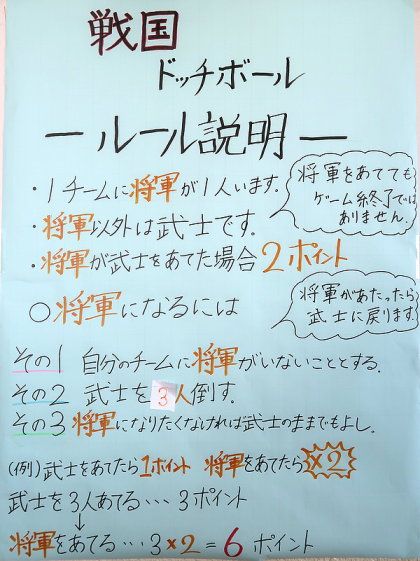 戦国
ドッチボール
ールール説明ー
・1チームに将軍が1人います。
将軍をあてても
ゲーム終了では
ありません。
・将軍以外は武士です。
・将軍が武士をあてた場合2ポイント
○将軍になるには
将軍があたったら
武士に戻ります
その1 自分のチームに将軍がいないこととする。
その2 武士を3人倒す。
その3 将軍になりたくなければ武士のままでもよし。
(例)武士をあてたら1ポイント 将軍をあてたら×2
武士を3人あてる・・・3ポイント
↓
将軍をあてる・・・3×2=6ポイント